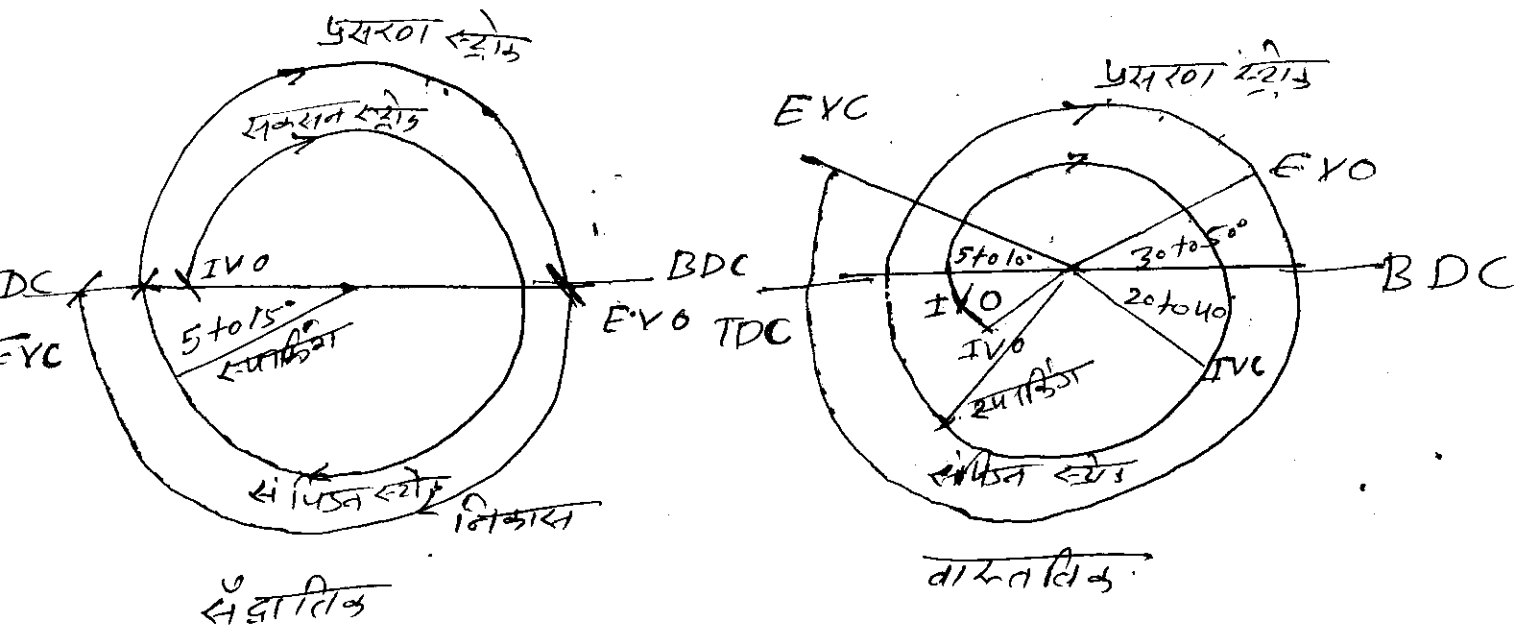 प्रसरण स्ट्रोक
सक्सन स्ट्रोक
IVO
DC
BDC
EVC
EVO
5 to 15°
स्पार्किंग
संपिडन स्ट्रोक
निकास
सैद्धांतिक
प्रसरण स्ट्रोक
EVC
EVO
5 to 10°
30 to 50°
BDC
TDC
IVO
IVO
20 to 40
IVC
स्पार्किंग
संपिडन स्ट्रोक
वास्तविक